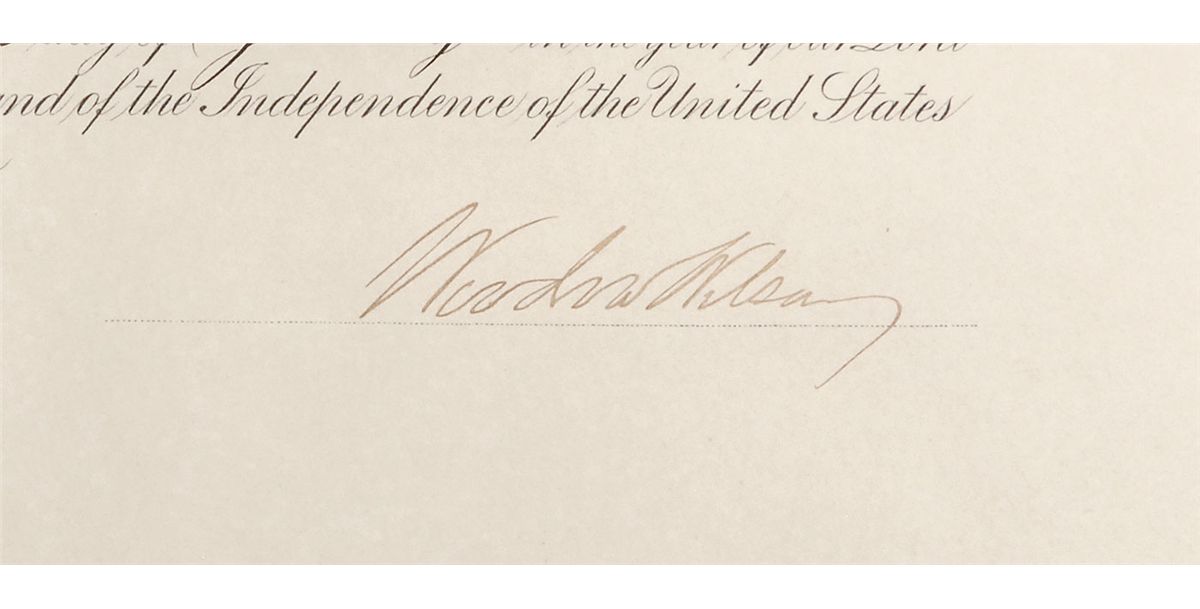 of in the year of our Lord
and of the Independence of the United States
Woodrow Wilson